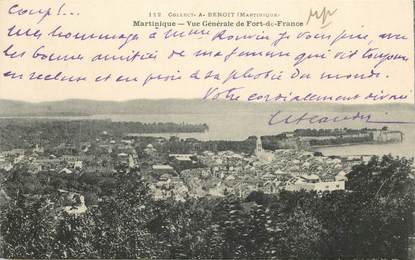 Coup!...
112 COLLECT. A. BENOIT (MARTINIQUE)
Martinique — Vue Générale de Fort-de-France
Mes hommages à Mme je vous prie, avec
les bonnes amitiés de ma femme qui vit toujours
en recluse et en proie à sa phobie du monde.
Votre cordialement dévoué